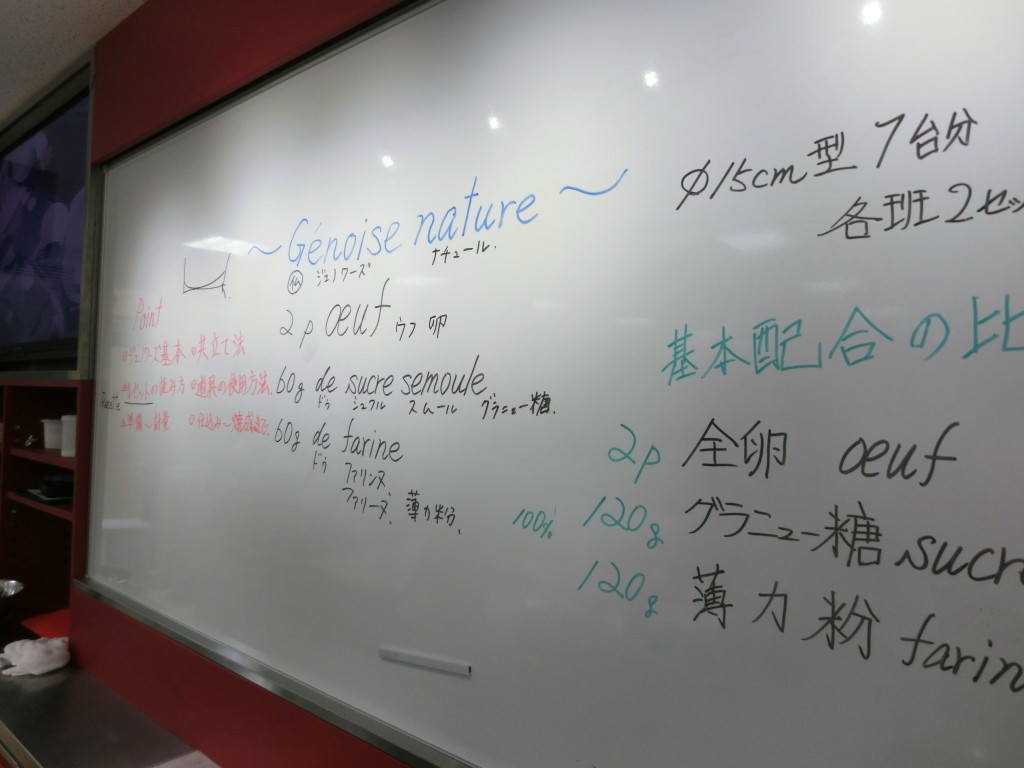 ～Génoise nature～
仏 ジェノワーズ ナチュール.
2p œuf ウフ 卵
60g de sucre semoule
ドゥ シュクル スムール グラニュー糖.
60g de farine
ドゥ ファリンヌ
ファリーヌ、薄力粉.
Point
ジェノワーズ基本 ○共立て法
の読み方 ○道具の使用方法.
Recette
準備～計量 ○仕込み～焼成迄
φ15cm型 7台分
各班2セッ
基本配合の比
2p 全卵 œuf
100% 120g グラニュー糖 sucre
120g 薄力粉 farin